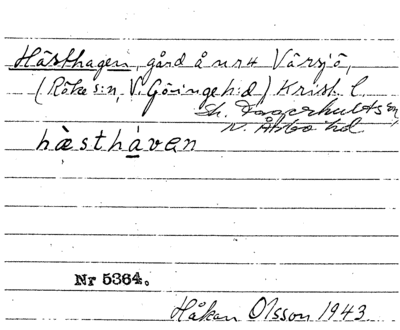 Hästhagen, gård å nr 4 Värsjö,
(Röke s:n, V. Göinge h:d) Krist. l.
Sk. Fagerhults sn,
N. Åsbo hd
hæ̀sthávən
Nr 5364.
Håkan Olsson 1943